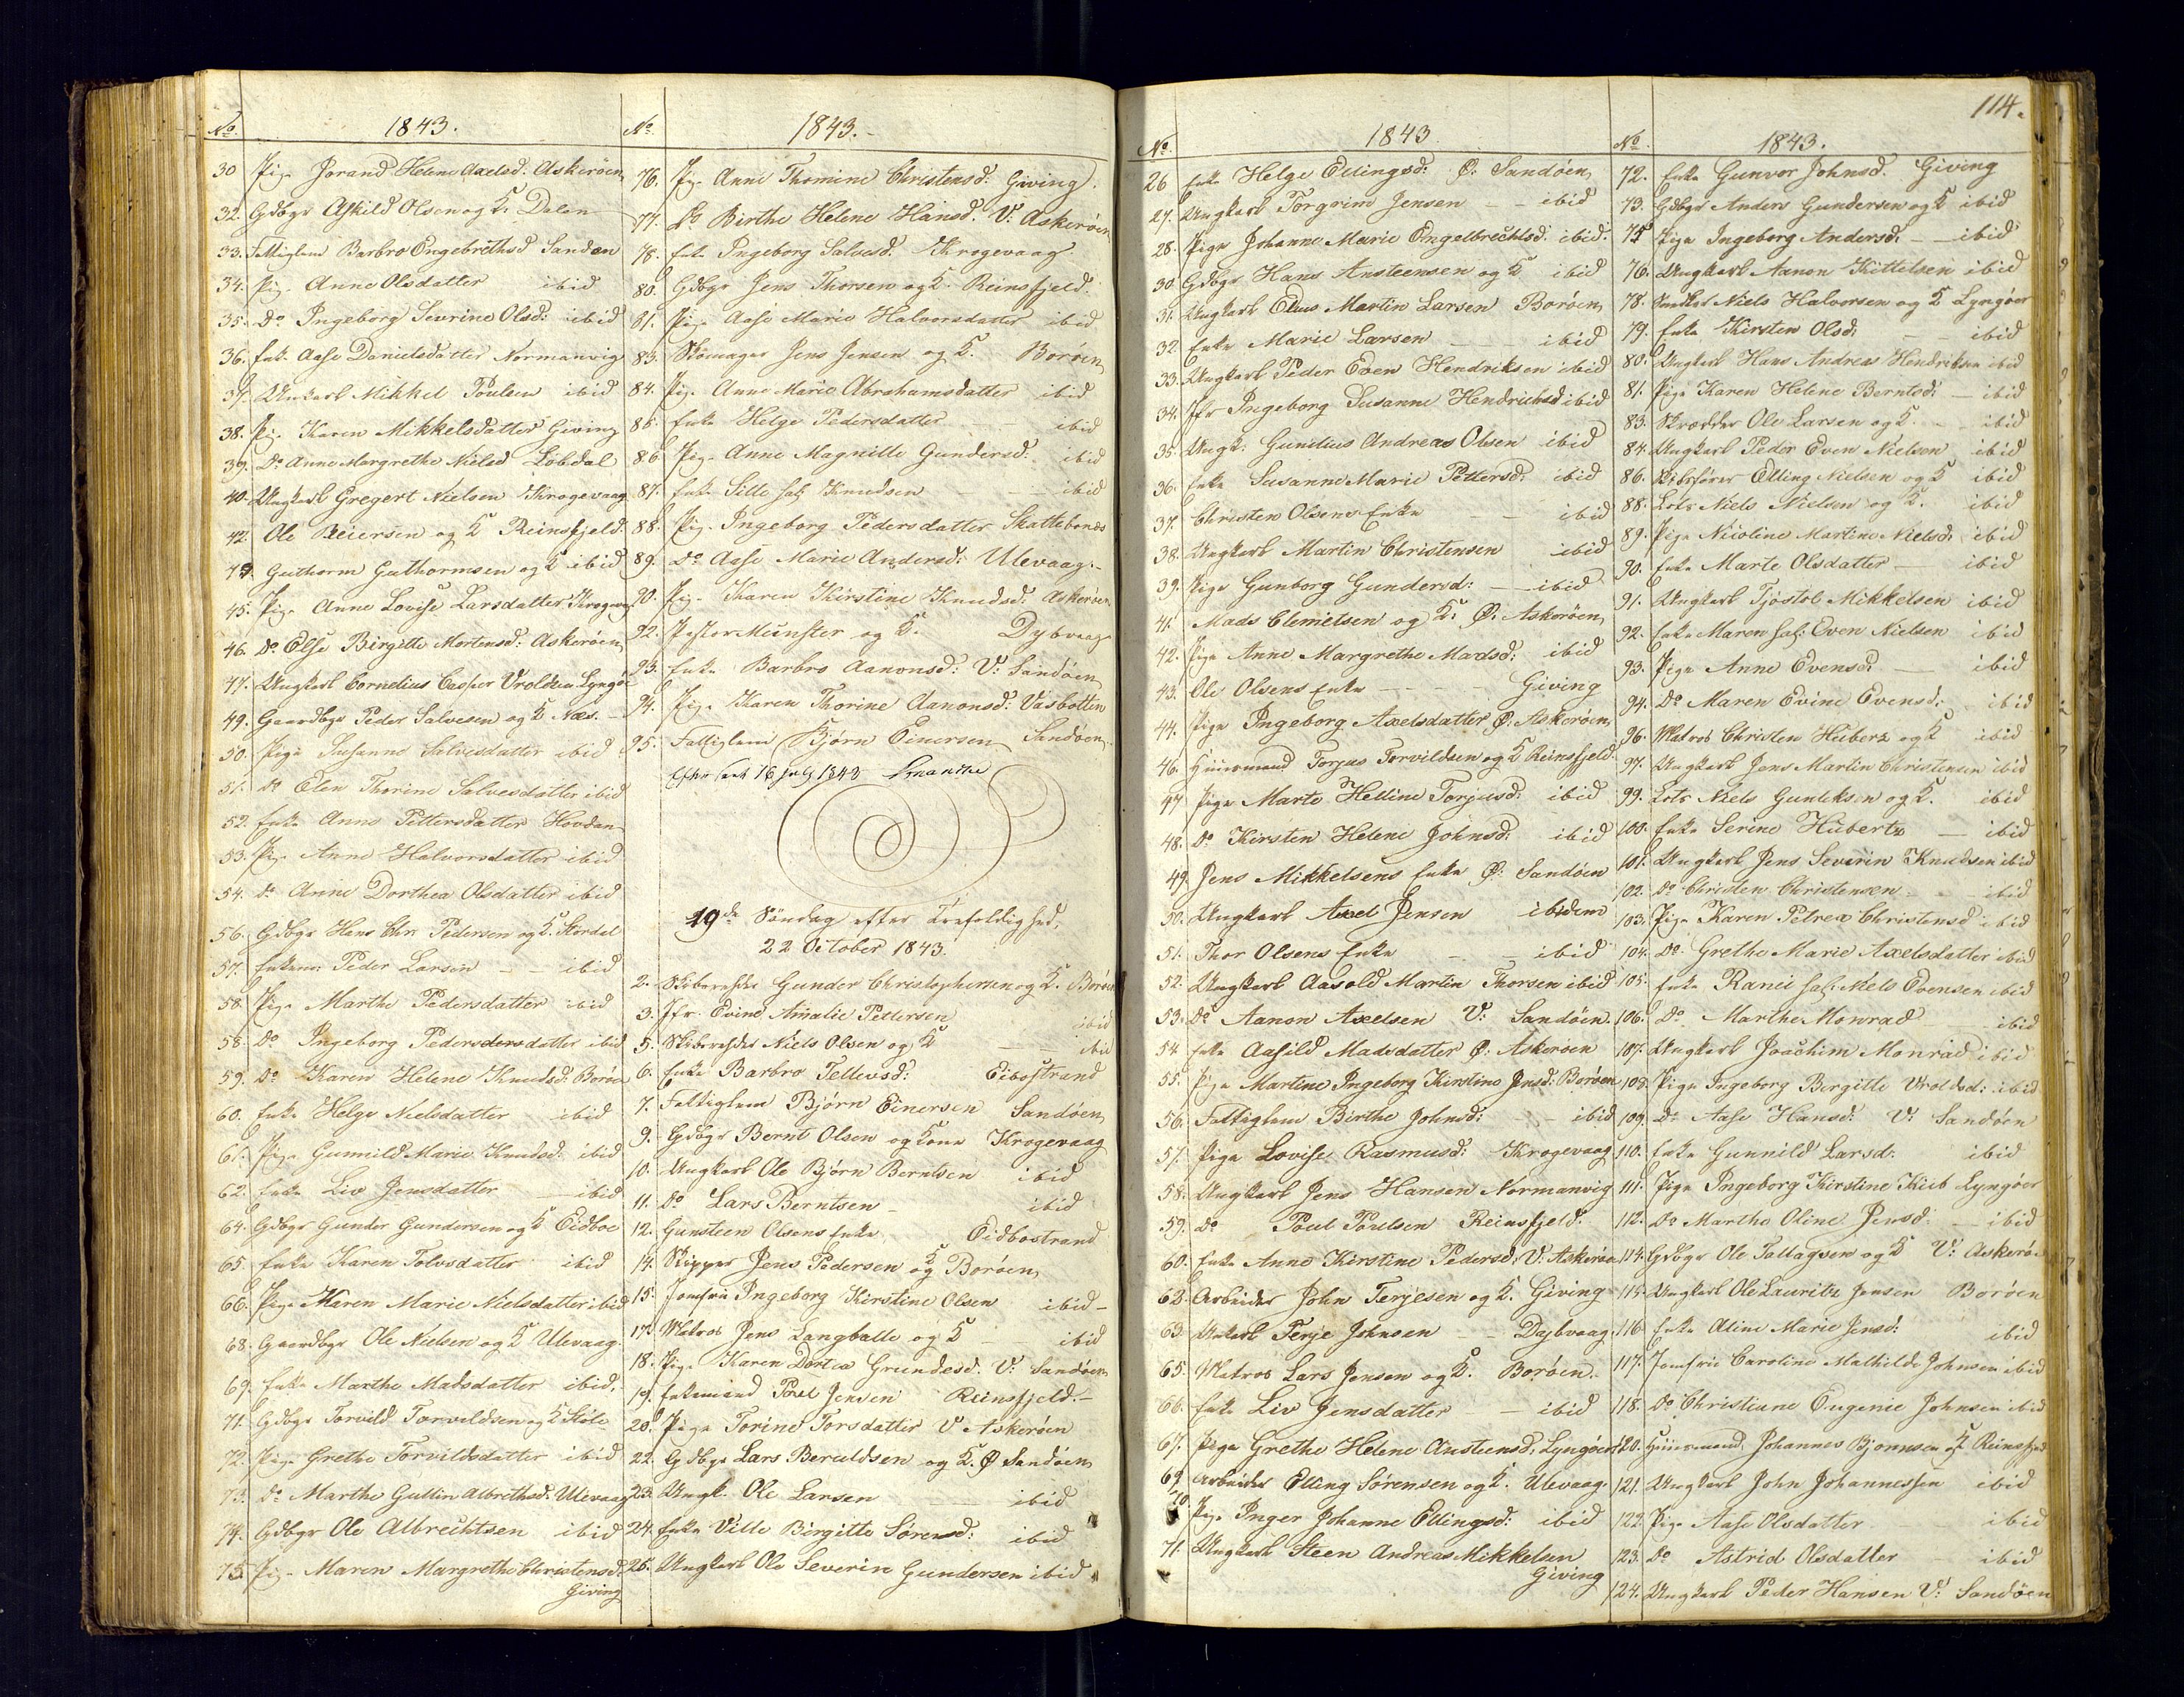 No. 1843.
30 Pige Jorand Helene Axelsd: Askerøen
32. Gdbgr Askild Olsen og K: Dalen
33. Fattiglem Barbro Engebrethsd Sandøen
34. Pig. Anne Olsdatter ibid
35. Do Ingeborg Sevrine Olsd: ibid
36. Enke Aase Danielsdatter Normanvig
37. Unkarl Mikkel Poulsen ibid
38. Pig. Karen Mikkelsdatter Giving
39. Do Anne Margrethe Nielsd Løbdal
40. Ungkarl Gregert Nielsen Krogevaag
42. Ole Reiersen og K Reinsfjeld.
Guthorm Guthormsen og K ibid
45. Pige Anne Lovise Larsdatter Krogevaag
46. Do Else Birgitte Mortensd: Askerøen
47. Ungkarl Cornelius Casper Vroldsen Lyngør
49. Gaardbgr Peder Salvesen og K Næs.
50. Pige Susanne Salvesdatter ibid
51. Do Elen Thorine Salvesdatter ibid
52. Enke Anne Pettersdatter Hovdan
53. Pig. Anne Halvorsdatter ibid
54. Do Anne Dorthea Olsdatter ibid
56. Gdbgr Hans Chr. Pedersen og K.
57. Enkem: Peder Larsen ibid
58. Pige Marthe Pedersdatter ibid
58. Do Ingeborg Pedersdersdatter ibid
59. Do Karen Helene Knudsd: Borøen
60. Enke Helge Nielsdatter ibid
61. Pige Gunnild Marie Knudsd: ibid
62. Enke Liv Jensdatter ibid
64. Gdbgr Gunder Gundersen og K Eidboe
65. Enke Karen Tolvsdatter ibid
66. Pige Maren Marie Nielsdatter ibid
68. Gaardbgr Ole Nielsen og K Ulevaag.
69. Enke Marthe Madsdatter ibid.
71. Gdbgr Torvild Torvildsen og K
72. Pige Grethe Torvildsdatter ibid
73. Do Marthe Gullin Albrethsd: Ulevaag
74. Gdbgr Ole Albrechtsen ibid
75. Pig. Maren Margrethe Christensd:
Giving
No 1843.
76. Pig. Anne Thomine Christensd: Giving.
77. Do Birthe Helene Hansd. V: Askerøen
78. Enke Ingeborg Salvesd. Krogevaag
80. Gdbgr Jens Thorsen og K. Reinsfjeld.
81. Pige Aase Marie Halvorsdatter ibid
83. Skomager Jens Jensen og K. Borøen
84. Pig. Anne Marie Abrahamsdatter ibid
85. Enke Helge Pedersdatter ibid
86. Pig. Anne Magnille Gundersd: ibid
87. Enke Sille sal: Knudsen ibid
88. Pig. Ingeborg Pedersdatter Skattebonæs
89. Do Aase Marie Andersd: Ulevaag
90. Pig. Karen Kirstine Knudsd: Askerøen
92. Pastor Münster og K. Dybvaag
93. Enke Barbro Aanonsd: V: Sandøen
94. Pig. Karen Thorine Aanonsd: Vasbotten
95. Fattiglem Bjørn Einersen Sandøen
16 July 1843
19de Søndag efter Trefoldighed,
22 October 1843.
2. Gunder Christophersen og K. Borøen
3. Jfr. Evine Amalie Pettersen ibid
5. Niels Olsen og K ibid
6. Enke Barbro Tellevsd: Eibostrand
7. Fattiglem Bjørn Einersen Sandøen
9. Gdbgr Bernt Olsen og Kone Krogevaag
10. Ungkarl Ole Bjørn Berntsen ibid
11. Do Lars Berntsen ibid
12. Gunsteen Olsens Enke Eidbostrand
14. Skipper Jens Pedersen og K Borøen
15. Jomfrü Ingeborg Kirstine Olsen ibid
17. Matros Jens Langballe og K ibid
18. Pige Karen Dortea V: Sandøen
19. Enkemand Poul Jensen Reinsfjeld.
20. Pige Torine Torsdatter V Askerøen
22. Gdbgr Lars Beruldsen og K. Ø Sandøen
23. Ungk. Ole Larsen ibid
24. Enke Ville Birgitte Sørensd: ibid
25. Ungkarl Ole Severin Gundersen ibid
114.
No. 1843
26 Enke Helge Ellingsd: Ø: Sandøen
27. Ungkarl Torgrim Jensen ibid
28. Pige Johanne Marie Engelbrechtsd. ibid.
30. Gdbgr Hans Ansteensen og K ibid
31. Ungkarl Elius Martin Larsen Borøen
32. Enke Marie Larsen ibid
33. Ungkarl Peder Even Hendriksen ibid
34. Jfr Ingeborg Susanne Hendrichsd ibid
35. Ungk: Gunelius Andreas Olsen ibid
36. Enke Susanne Marie Pettersd: ibid
37. Christen Olsens Enke ibid
38. Ungkarl Martin Christensen ibid
39. Pige Gunborg Gundersd: ibid
41. Mads Clemetsen og K: Ø: Askerøen
42. Pige Anne Margrethe Madsd: ibid
43. Ole Olsens Enke Giving
44. Pige Ingeborg Axelsdatter Ø: Askerøen
46. Huusmand Torjus Torvildsen og K Reinsfjeld.
47 Pige Marte Helline Torjusd: ibid
48. Do Kirsten Helene Johnsd: ibid
49. Jens Mikkelsens Enke Ø: Sandøen
50. Ungkarl Axel Jensen ibidem
51. Thor Olsens Enke ibid
52. Ungkarl Aasold Martin Thorsen ibid
53. Do Aanon Axelsen V: Sandøen.
54 Enke Aasild Madsdatter Ø: Askerøen
55. Pige Martine Ingeborg Kirstine Jensd: Borøen
56. Fattiglem Birthe Johnsd: ibid
57. Pige Lovise Rasmusd: Krogevaag
58. Ungkarl Jens Hansen Normanvig
59. Do Poul Poulsen Reinsfjeld.
60. Enke Anne Kirstine Pedersd: V: Askerøen
62. Arbeider John Terjesen og K. Giving
63. Unkarl Terje Johnsen Dybvaag
65. Matros Lars Jensen og K. Borøen.
66. Enke Liv Jensdatter ibid
67. Pige Grethe Helene Austensd: Lyngøer
69. Arbeider Elling Sørensen og K. Ulevaag.
70. Pige Inger Johanne Ellingsd: ibid
71. Ungkarl Steen Andreas Mikkelsen
Giving
No. 1843.
72. Enke Gunvor Johnsd. Giving
73. Gdbgr Anders Gundersen og K ibid
75 Pige Ingeborg Andersd: ibid
76. Ungkarl Aanon Kittelsen ibid
78. Niels Halvorsen og K Lyngøer
79. Enke Kirsten Olsd: ibid
80. Ungkarl Hans Andreas Hendriksen ibid
81. Pige Karen Helene Berntsd: ibid
83. Skrædder Ole Larsen og K. ibid
84. Ungkarl Peder Even Nielsen ibid
86. Skibsfører Elling Nielsen og K ibid
88. Lots Niels Nielsen og K. ibid
89. Pige Nicoline Martine Nielsd: ibid
90. Enke Marte Olsdatter ibid
91. Ungkarl Tjøstol Mikkelsen ibid
92. Enke Maren sal: Even Nielsen ibid
93. Pige Anne Evensd: ibid
94. Do Maren Evine Evensd: ibid
96. Matros Christen Hubert og K ibid
97. Ungkarl Jens Martin Christensen ibid
99. Lots Niels Gunleksen og K. ibid
100. Enke Serine Hubertz ibid
101. Ungkarl Jens Severin Knudsen ibid
102. Do Christen Christensen ibid
103. Pige Karen Petrea Christensd ibid
104. Do Grethe Marie Axelsdatter ibid
105. Enke Ranei sal: Niels Evensen ibid
106. Do Marthe Monrad ibid
107. Ungkarl Joachim Monrad ibid
108. Pige Ingeborg Birgitte Vroldsd: ibid
109. Do Aase Hansd: V: Sandøen
110. Enke Gunnild Larsd: ibid
111. Pige Ingeborg Kirstine Kiib Lyngøer
112. Do Marthe Oline Jensd: ibid
114. Gdbgr Ole Tallagsen og K V: Askerøen
115. Ungkarl Ole Lauritz Jensen Borøen
116. Enke Aline Marie Jensd: ibid
117. Jomfrü Caroline Mathilde Johnsen ibid
118. Do Christiane Eugenie Johnsen ibid
120. Huusmand Johannes Bjørnsen og K Reinsfjeld
121. Ungkarl John Johannessen ibid
122. Pige Aase Olsdatter ibid
123. Do Astrid Olsdatter ibid
124. Ungkarl Peder Hansen V: Sandøen